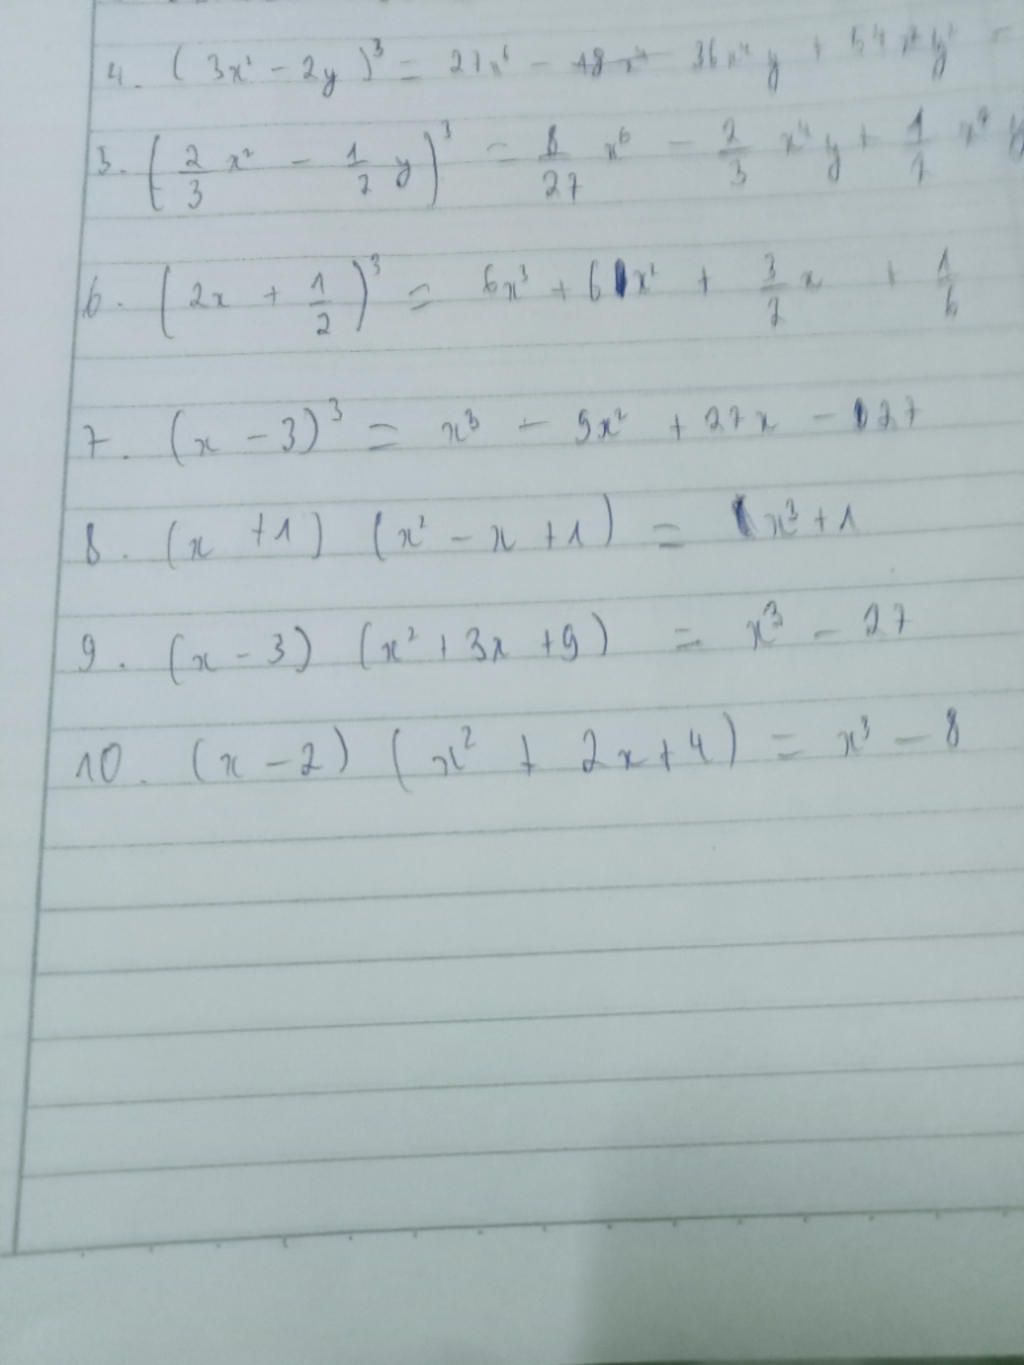 4. (3x² - 2y)³ = 27x⁶ - 36x⁴y + 54x²y² =
5. (2/3 x² - 1/2 y)³ = 8/27 x⁶ - 2/3 x⁴y + 1/2 x² y
6. (2x + 1/2)³ = 8x³ + 6x² + 3/2 x + 1/8
7. (x - 3)³ = x³ - 9x² + 27x - 27
8. (x + 1) (x² - x + 1) = x³ + 1
9. (x - 3) (x² + 3x + 9) = x³ - 27
10. (x - 2) (x² + 2x + 4) = x³ - 8